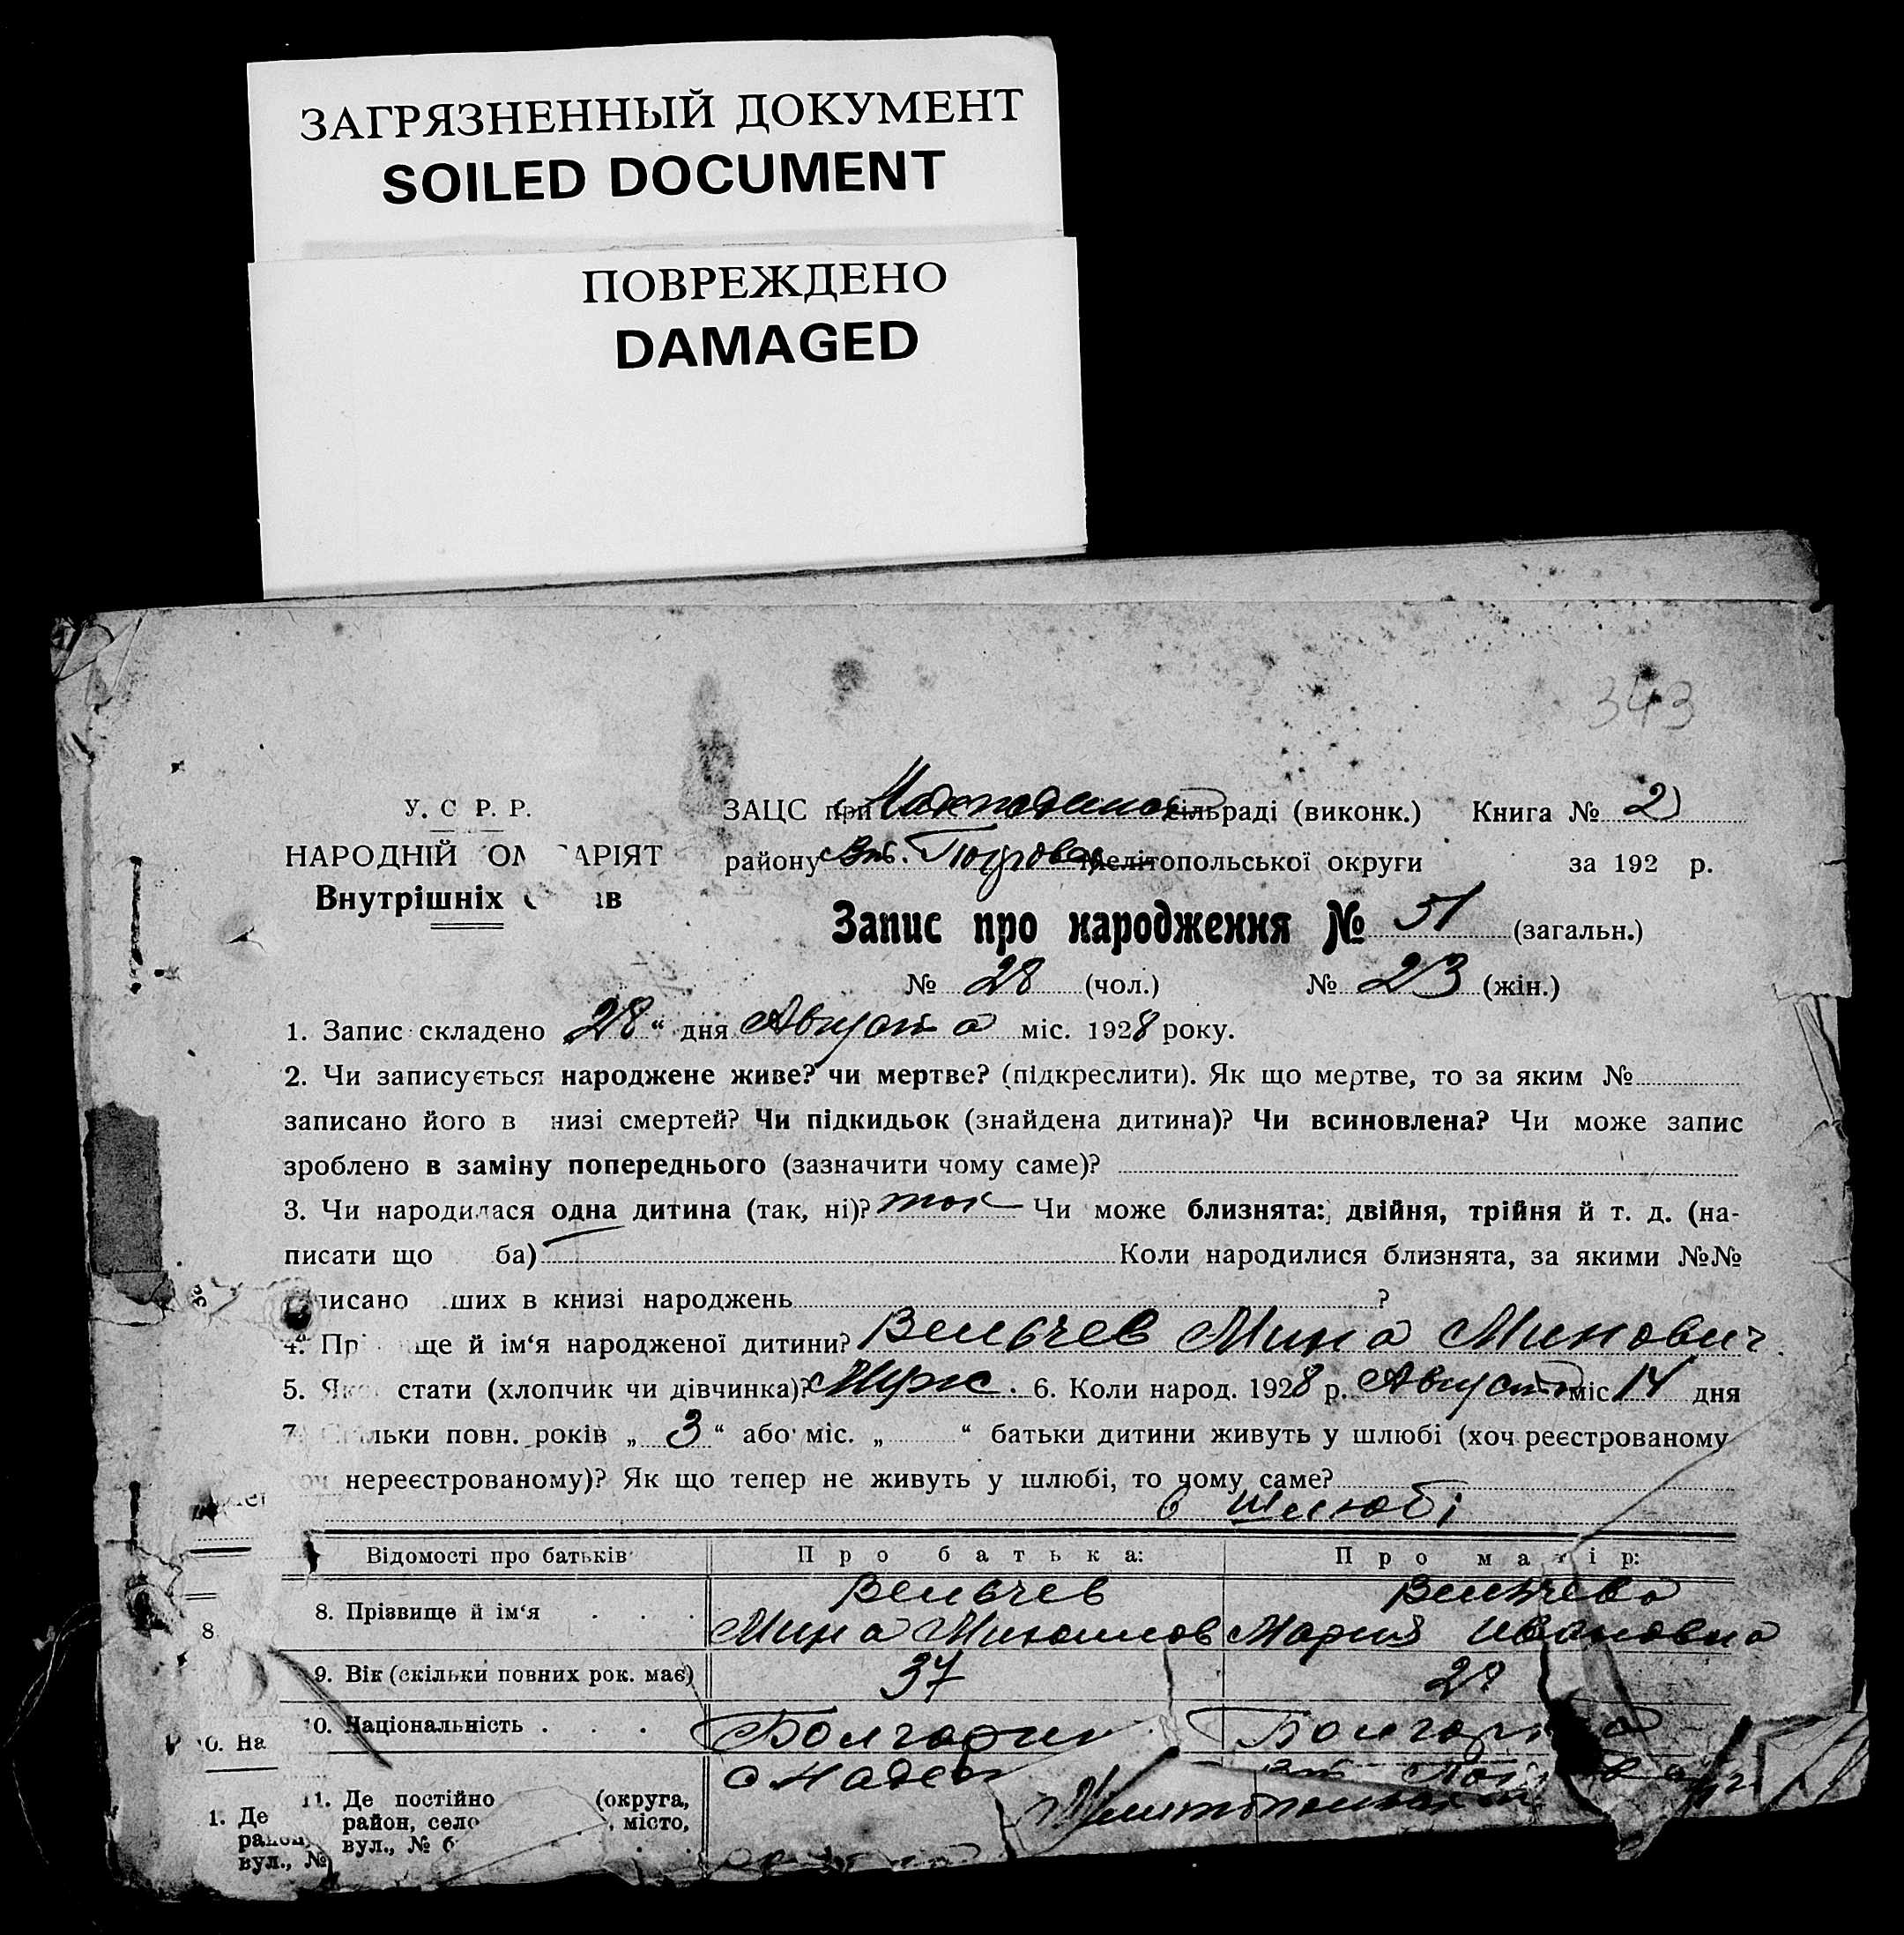 ЗАГРЯЗНЕННЫЙ ДОКУМЕНТ
SOILED DOCUMENT
ПОВРЕЖДЕНО
DAMAGED
343
У. С Р. Р.
НАРОДНІЙ ОМ АРІЯТ
Внутрішніх ів
ЗАЦС при сільраді (виконк.) Книга № 2
району Мелітопольської округи за 192 р.
Запис про народження № 51 (загальн.)
№ 28 (чол.) № 23 (жін.)
1. Запис складено 28 “ дня Августа міс. 1928 року.
2. Чи записується народжене живе? чи мертве? (підкреслити). Як що мертве, то за яким №
записано його в низі смертей? Чи підкидьок (знайдена дитина)? Чи всиновлена? Чи може запис
зроблено в заміну попереднього (зазначити чому саме)?
3. Чи народилася одна дитина (так, ні)? так Чи може близнята: двійня, трійня й т. д. (на-
писати що ба) Коли народилися близнята, за якими №№
писано ших в книзі народжень ?
4. Прі ще й ім‘я народженої дитини? Вельчев Мина Минович
5. Якої стати (хлопчик чи дівчинка)? Муж. 6. Коли народ. 1928 р. Августа міс 14 дня
7. Скільки повн. років „ 3 “ або міс. „ “ батьки дитини живуть у шлюбі (хоч реєстрованому
оч нереєстрованому)? Як що тепер не живуть у шлюбі, то чому саме?
в шлюбі
Відомості про батьків Про батька: Про матір:
8. Прізвище й ім‘я Вельчев Вельчева
Мина Михаилов Мария Ивановна
8.
9. Вік (скільки повних рок. має) 37
10. Національність Болгарин
10. На
11. Де постійно (округа,
район, село , місто,
вул., № б
1. Де
район,
вул., №